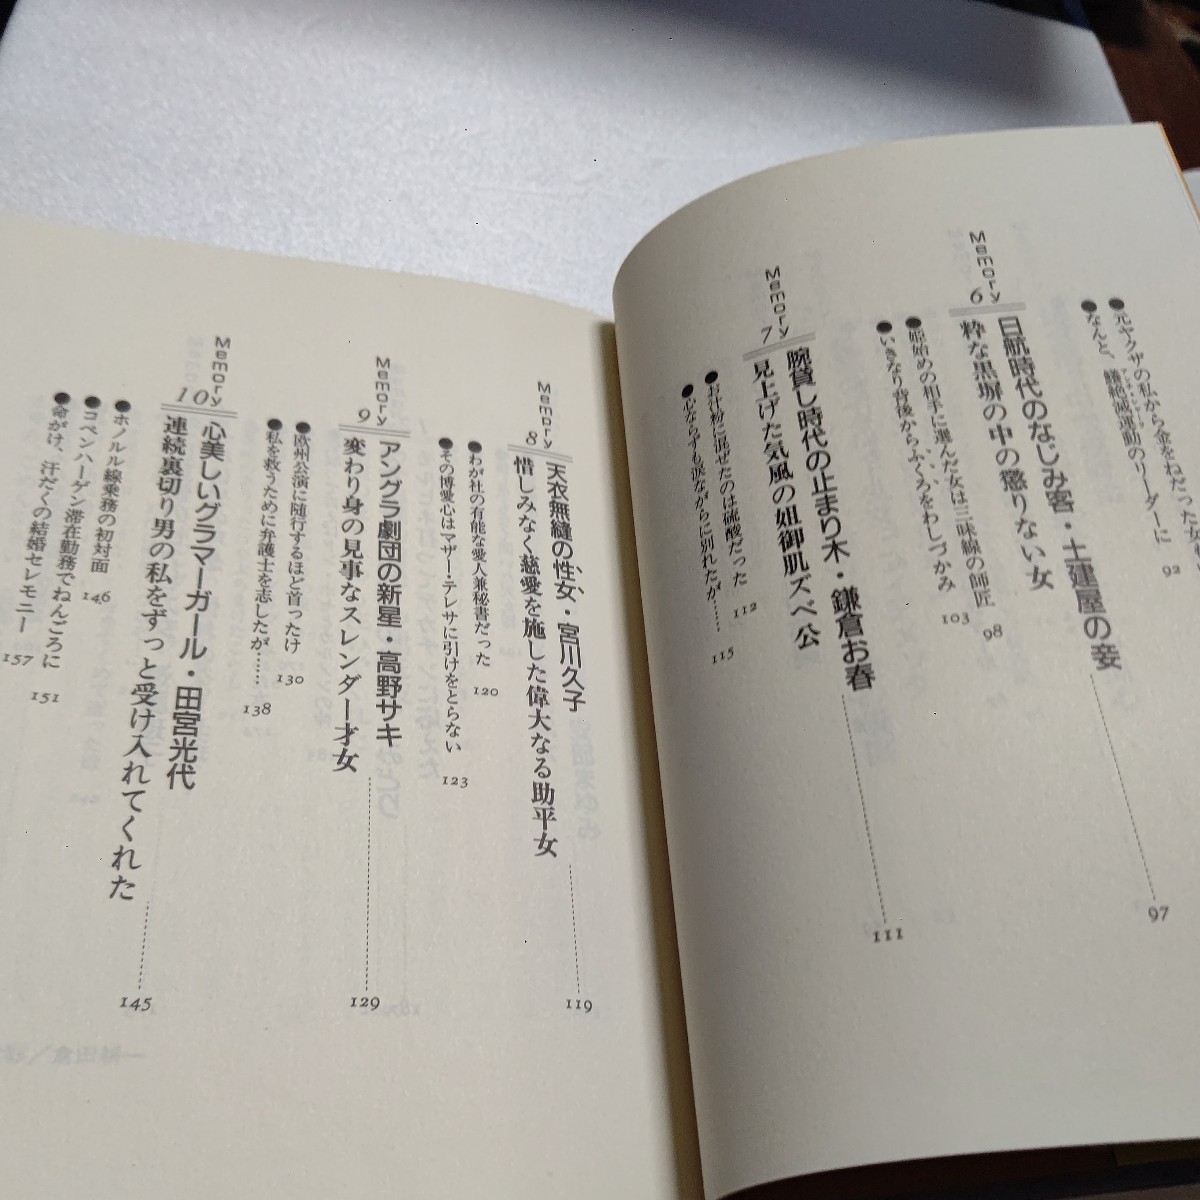 元ヤクザの私から金をねだった女
なんと、鰻絶滅運動のリーダーに 92
Memory 6
日航時代のなじみ客・土建屋の妾
粋な黒塀の中の懲りない女 97
姫始めの相手に選んだ女は三味線の師匠 98
いきなり背後からふくろをわしづかみ 103
Memory 7
腕貸し時代の止まり木・鎌倉お春
見上げた気風の姐御肌ズベ公 111
お汁粉に混ぜたのは硫酸だった 112
心ならずも涙ながらに別れたが…… 115
Memory 8
天衣無縫の性女、宮川久子
惜しみなく慈愛を施した偉大なる助平女 119
わが社の有能な愛人兼秘書だった 120
その博愛心はマザー・テレサに引けをとらない 123
Memory 9
アングラ劇団の新星・高野サキ
変わり身の見事なスレンダー才女 129
欧州公演に随行するほど首ったけ 130
私を救うために弁護士を志したが…… 138
Memory 10
心美しいグラマーガール・田宮光代
連続裏切り男の私をずっと受け入れてくれた 145
ホノルル線乗務の初対面 146
コペンハーゲン滞在勤務でねんごろに 151
命がけ、汗だくの結婚セレモニー 157